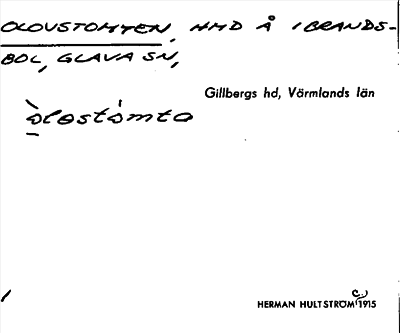 OLOVSTOMTEN, HMD Å IBRANDS-
BOL, GLAVA SN,
Gillbergs hd, Värmlands län
òlostòmta
HERMAN HULTSTRÖM (c.) 1915